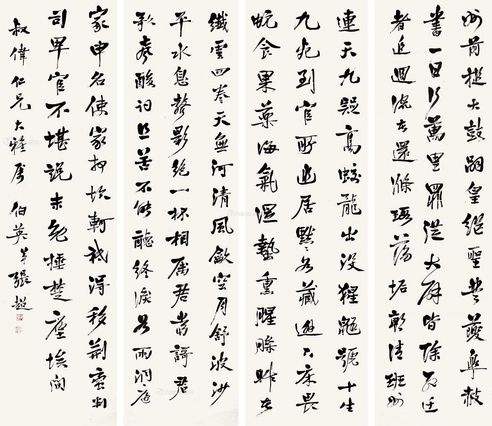 州前捶大鼓嗣皇繼聖登夔皋赦
書一日行萬里罪從大辟皆除死遷
者追迴流者還滌瑕蕩垢朝清班州
連天九疑高蛟龍出沒猩鼯號十生
九死到官所幽居默默如藏逃下床畏
蛇食畏藥海氣濕蟄熏腥臊昨者
纖雲四卷天無河清風歛空月舒波沙
平水息聲影絕一杯相屬君當謌君
歌聲酸詞且苦不能聽終淚如雨洞庭
家申名使家抑坎軻祇得移荊蠻判
司卑官不堪說未免捶楚塵埃間
叔偉仁兄大雅屬 伯英弟張超